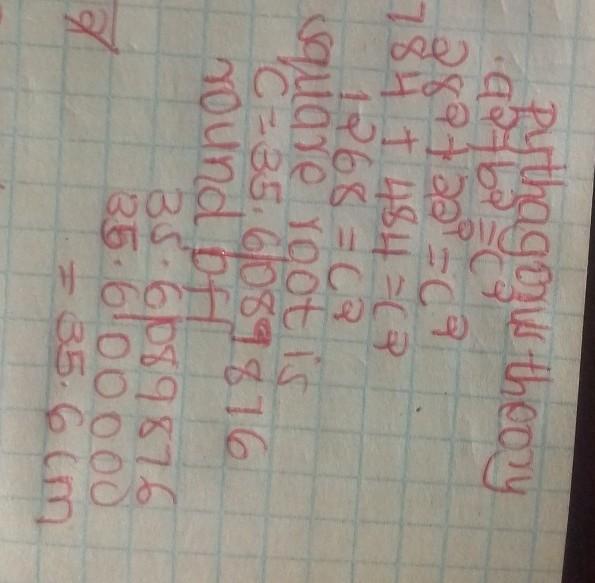 pythagorus theory
a²+b²=c²
28²+22²=c²
784+484=c²
1268=c²
square root is
c=35.6|089876
round off
35.6|089876
35.6|00000
=35.6cm